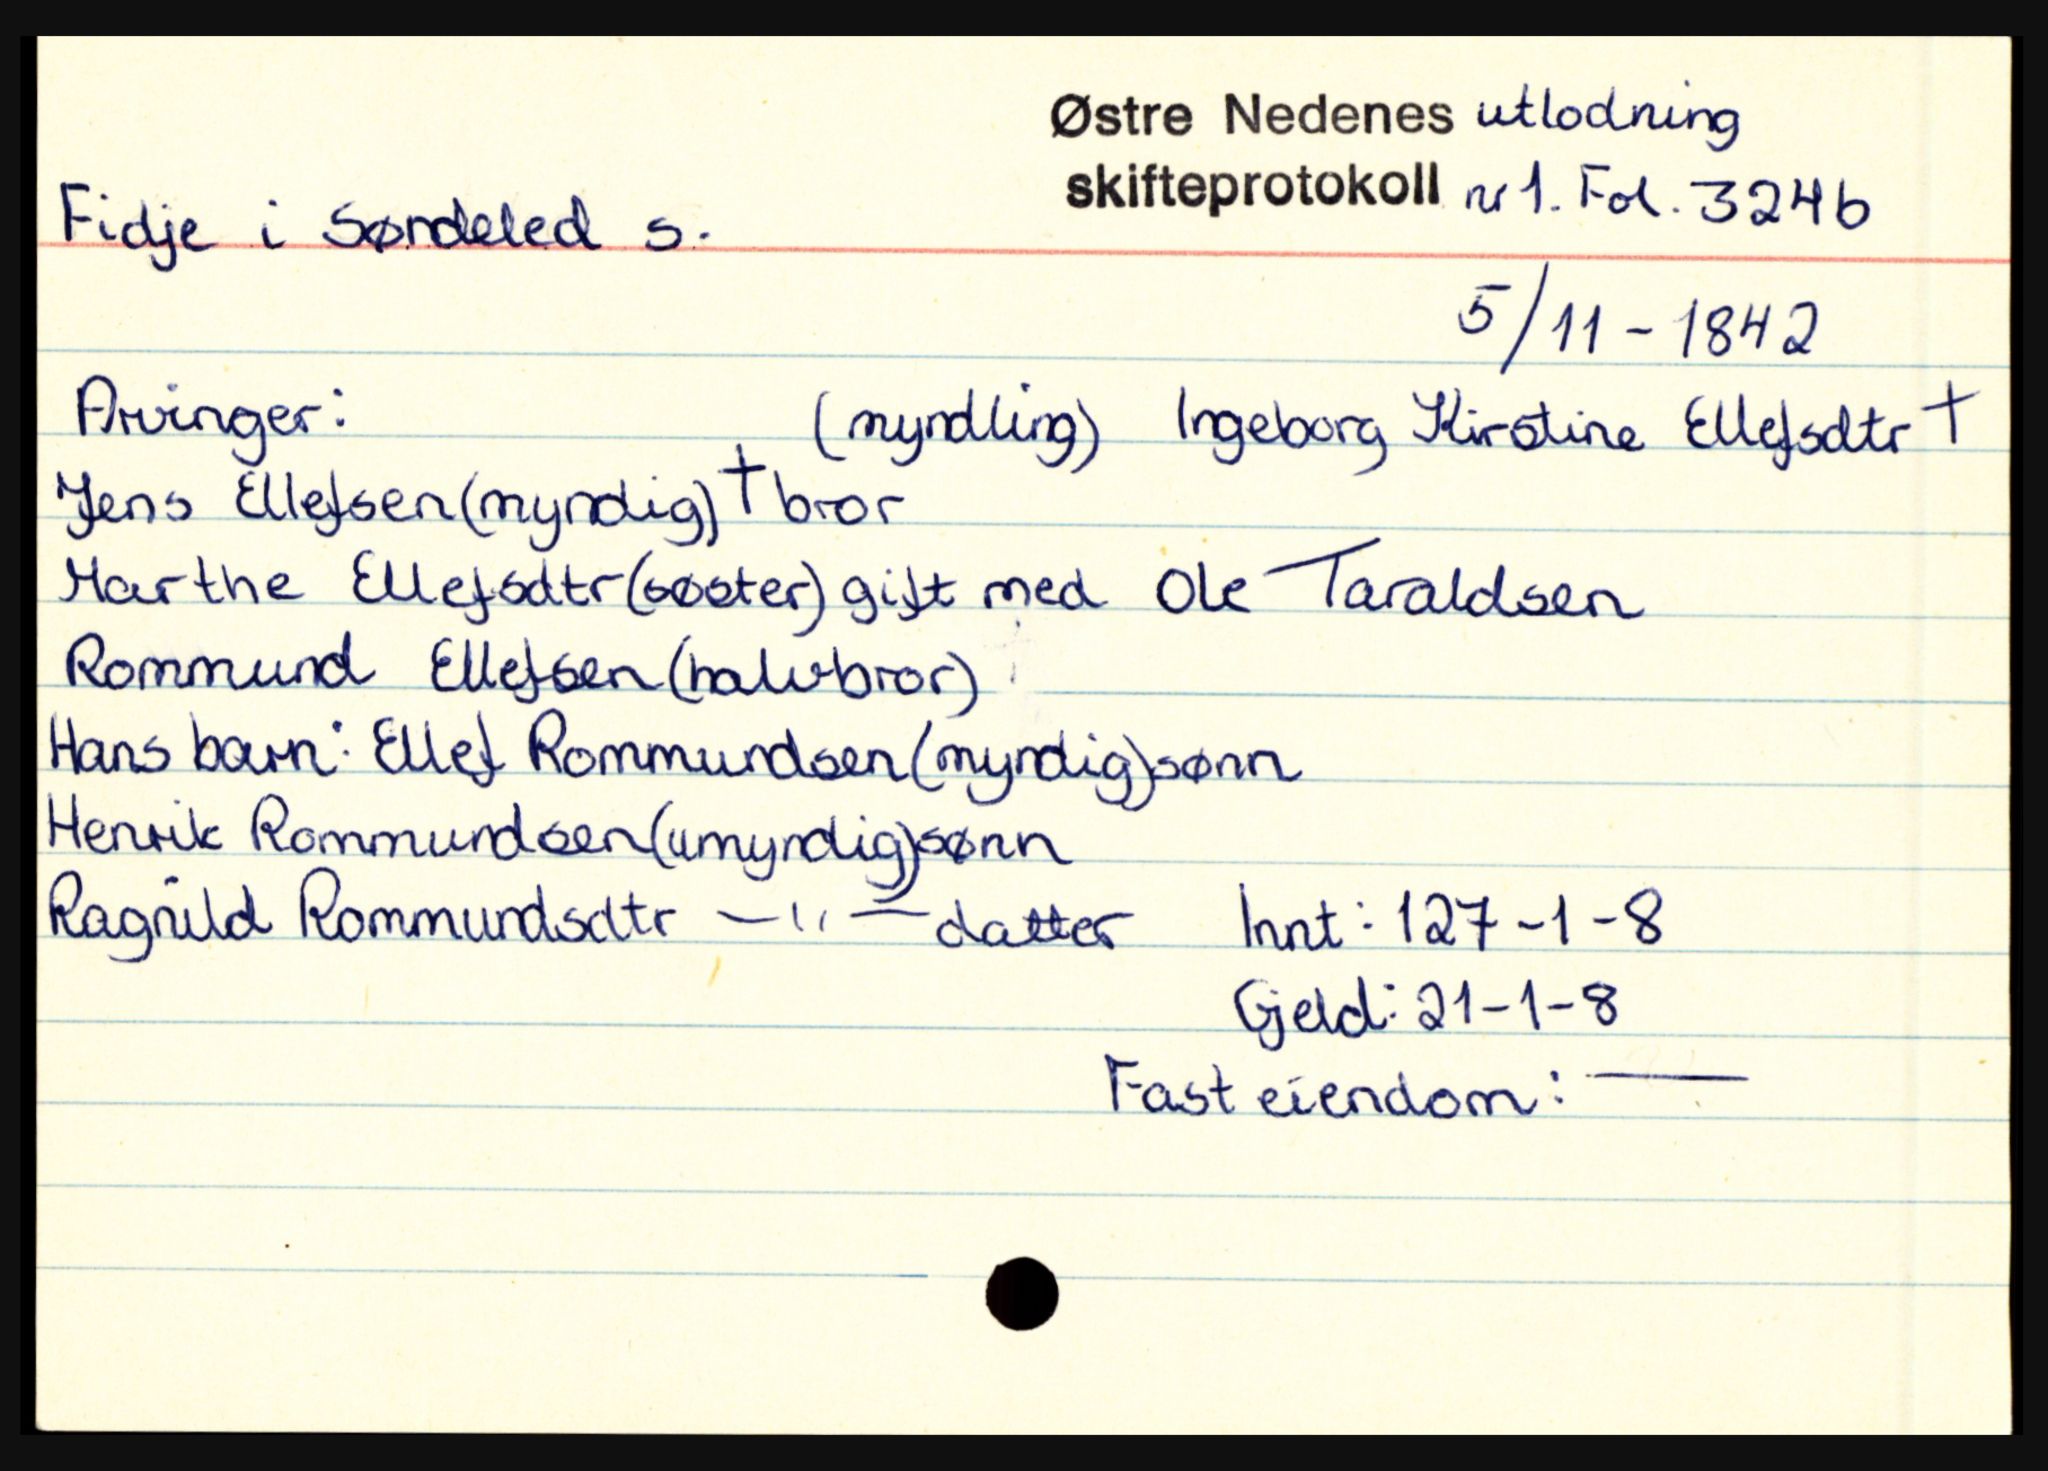 Østre Nedenes utlodning
skifteprotokoll nr 1. Fol. 324b
Fidje i Søndeled s.
5/11-1842
Arvinger: (myndling) Ingeborg Kirstine Ellefsdtr †
Jens Ellefsen (myndig) † bror
Marthe Ellefsdtr (søster) gift med Ole Taraldsen
Rommund Ellefsen (halvbror)
Hans barn: Ellef Rommundsen (myndig) sønn
Henrik Rommundsen (umyndig) sønn
Ragnild Rommundsdtr —"— datter Innt: 127-1-8
Gjeld: 21-1-8
Fast eiendom: —